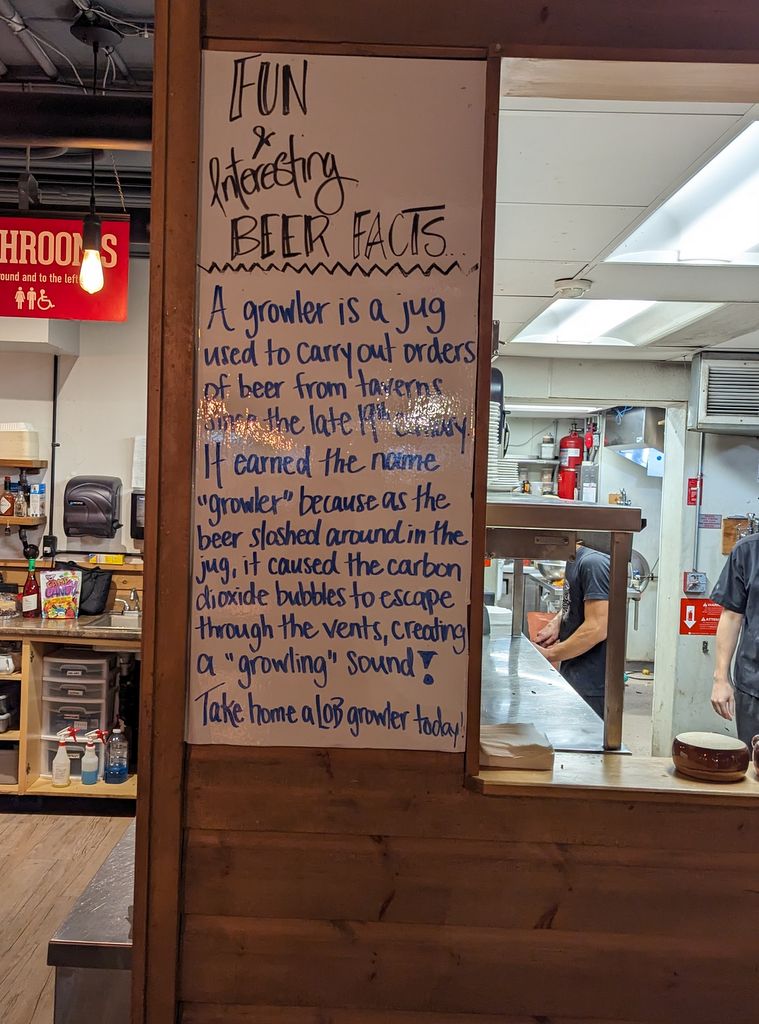 FUN
&
Interesting
BEER FACTS...
A growler is a jug
used to carry out orders
of beer from taverns
since the late 19th century.
It earned the name
"growler" because as the
beer sloshed around in the
jug, it caused the carbon
dioxide bubbles to escape
through the vents, creating
a "growling" sound!
Take home a LOB growler today!
THROOMS
ound and to the left
CANDY